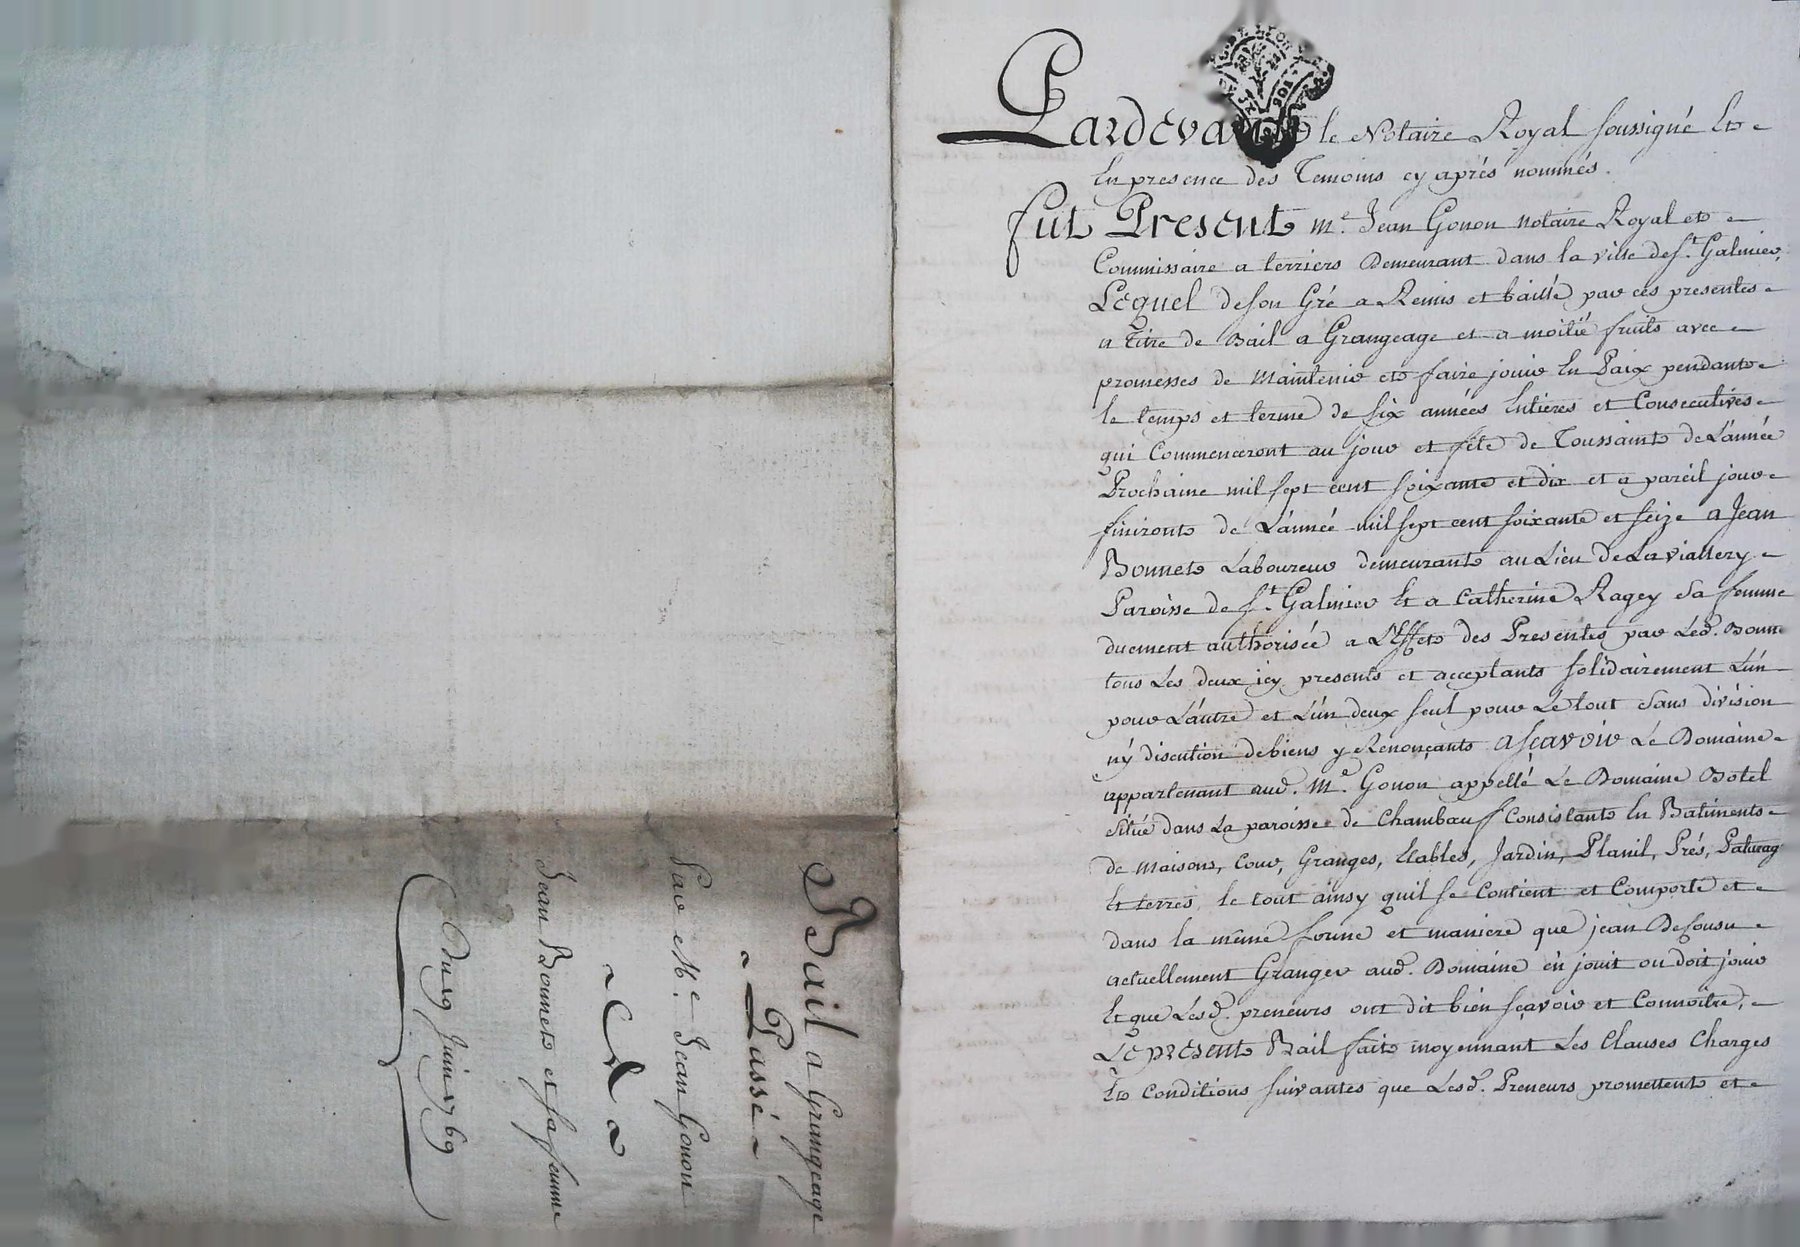 Bail a Grangeage
~ Passé ~
Par Me. Jean Gonon
~ A ~
Jean Bonnet et sa femme
Du 19 Juin 1769
Pardevant le Notaire Royal soussigné Et
En presence des Temoins cy aprés nommés.
fut Present Me. Jean Gonon notaire Royal et
Commissaire a terriers Demeurant dans la ville de St. Galmier,
Lequel de son Gré a Remis et baillé par ces presentes
a Titre de Bail a Grangeage et a moitié fruits avec
promesses de Maintenir et faire jouir En Paix pendant
le temps et terme de six années Entieres et Consecutives
qui Commenceront au jour et fête de Toussaint de L'année
Prochaine mil sept cent soixante et dix et a pareil jour
finiront de L'année mil sept cent soixante et seize a Jean
Bonnet Laboureur demeurant au Lieu de La viallery
Paroisse de St. Galmier Et a Catherine Ragey sa femme
duement authorisée a L'Effet des Presentes par Led. Bonn
tous Les deux icy presents et acceptants solidairement L'un
pour L'autre et L'un deux seul pour Le tout sans division
ny discution de biens y Renonçants asçavoir Le Domaine
appartenant aud. Me. Gonon appellé Le Domaine Botel
situé dans La paroisse de Chambauf Consistant En Batiments
de Maisons, Cour, Granges, Etables, Jardin, Planil, Prés, Paturag
Et terres, le tout ainsy quil se Contient et Comporte et
dans la même forme et maniere que jean Defousu
actuellement Granger aud. Domaine en jouit ou doit jouir
Et que Lesd. preneurs ont dit bien sçavoir et Connoitre,
Le present Bail fait moyennant Les Clauses Charges
Et Conditions suivantes que Lesd. Preneurs promettent et